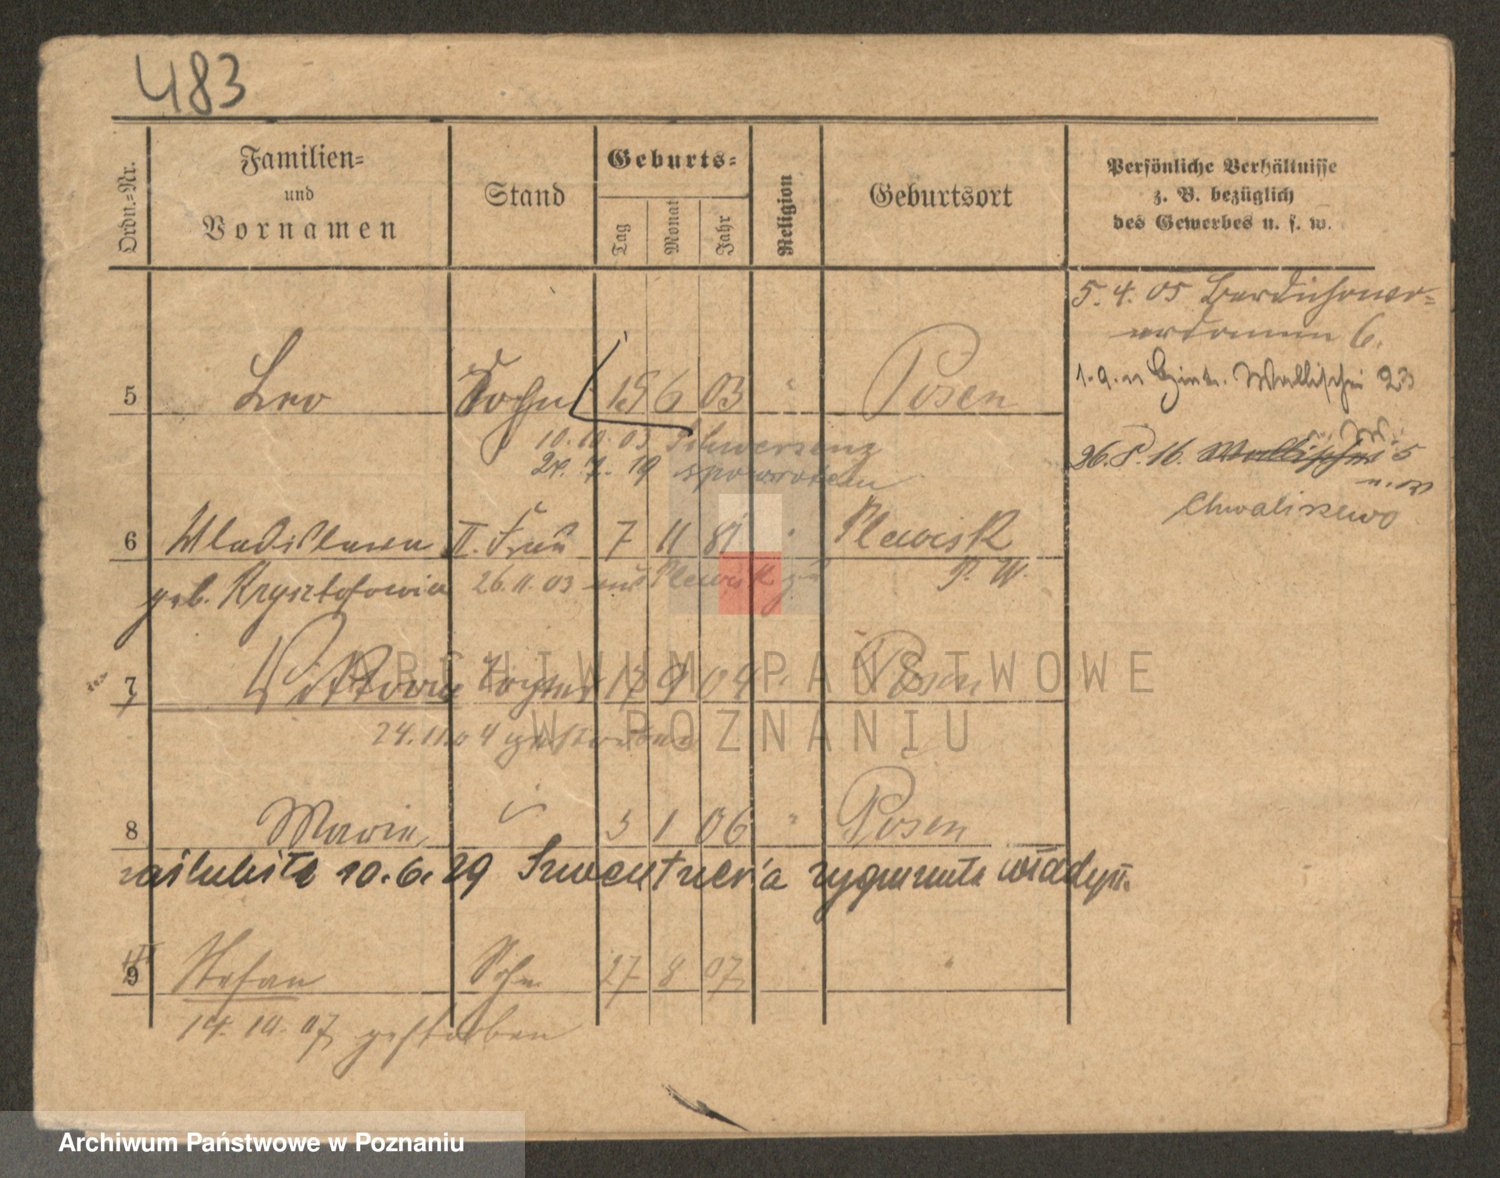 483
Ordn.-Nr.
Familien-
und
Vornamen
Stand
Geburts-
Tag
Monat
Jahr
Religion
Geburtsort
Persönliche Verhältnisse
z. B. bezüglich
des Gewerbes u. s. w.
5. 4. 05
6.
1. 9. 11 Wallischei 23
26. 8. 16. Wallischei 5
Chwaliszewo
5 Leo Sohn 15 6 03 " Posen
10. 10. 03 Schwersenz
24. 7. 19 spowrotem
6 Wladislawa II. Frau 7 11 81 " Plewisk
geb. Krysztofowia 26. 11. 03 aus Plewisk zu P. W.
7 Viktoria Tochter 17 9 04 " Posen
24. 11. 04 gestorben
8 Maria " 3 1 06 " Posen
zaślubiła 10. 6. 29 Szwentner'a Zygmunta Władysł.
9 Stefan Sohn 27 8 07 "
14. 10. 07 gestorben
ARCHIWUM PAŃSTWOWE
W POZNANIU
Archiwum Państwowe w Poznaniu